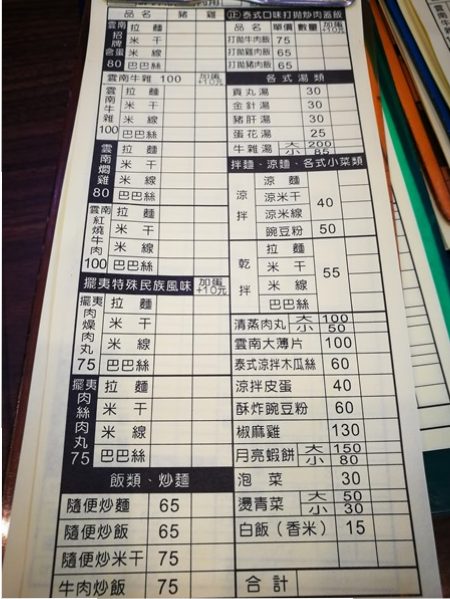 品名 豬 雞
雲南招牌會蛋80
拉麵
米干
米線
巴巴絲
雲南牛雜 100 加蛋+10元
雲南牛雜100
拉麵
米干
米線
巴巴絲
雲南燜雞80
拉麵
米干
米線
巴巴絲
雲南紅燒牛肉100
拉麵
米干
米線
巴巴絲
擺夷特殊民族風味 加蛋+10元
擺夷肉燥肉丸75
拉麵
米干
米線
巴巴絲
擺夷肉絲肉丸75
拉麵
米干
米線
巴巴絲
飯類、炒麵
隨便炒麵 65
隨便炒飯 65
隨便炒米干 75
牛肉炒飯 75
正泰式口味打拋炒肉蓋飯
品名 單價 數量 加蛋+10元
打拋牛肉飯 75
打拋雞肉飯 65
打拋豬肉飯 65
各式湯類
貢丸湯 30
金針湯 30
豬肝湯 30
蛋花湯 25
牛雜湯 大 200
小 85
拌麵、涼麵、各式小菜類
涼拌
涼麵
涼米干
涼米線
40
豌豆粉 50
乾拌
拉麵
米干
米線
巴巴絲
55
清蒸肉丸 大 100
小 50
雲南大薄片 100
泰式涼拌木瓜絲 60
涼拌皮蛋 40
酥炸豌豆粉 60
椒麻雞 130
月亮蝦餅 大 150
小 80
泡菜 30
燙青菜 大 50
小 30
白飯(香米) 15
合計